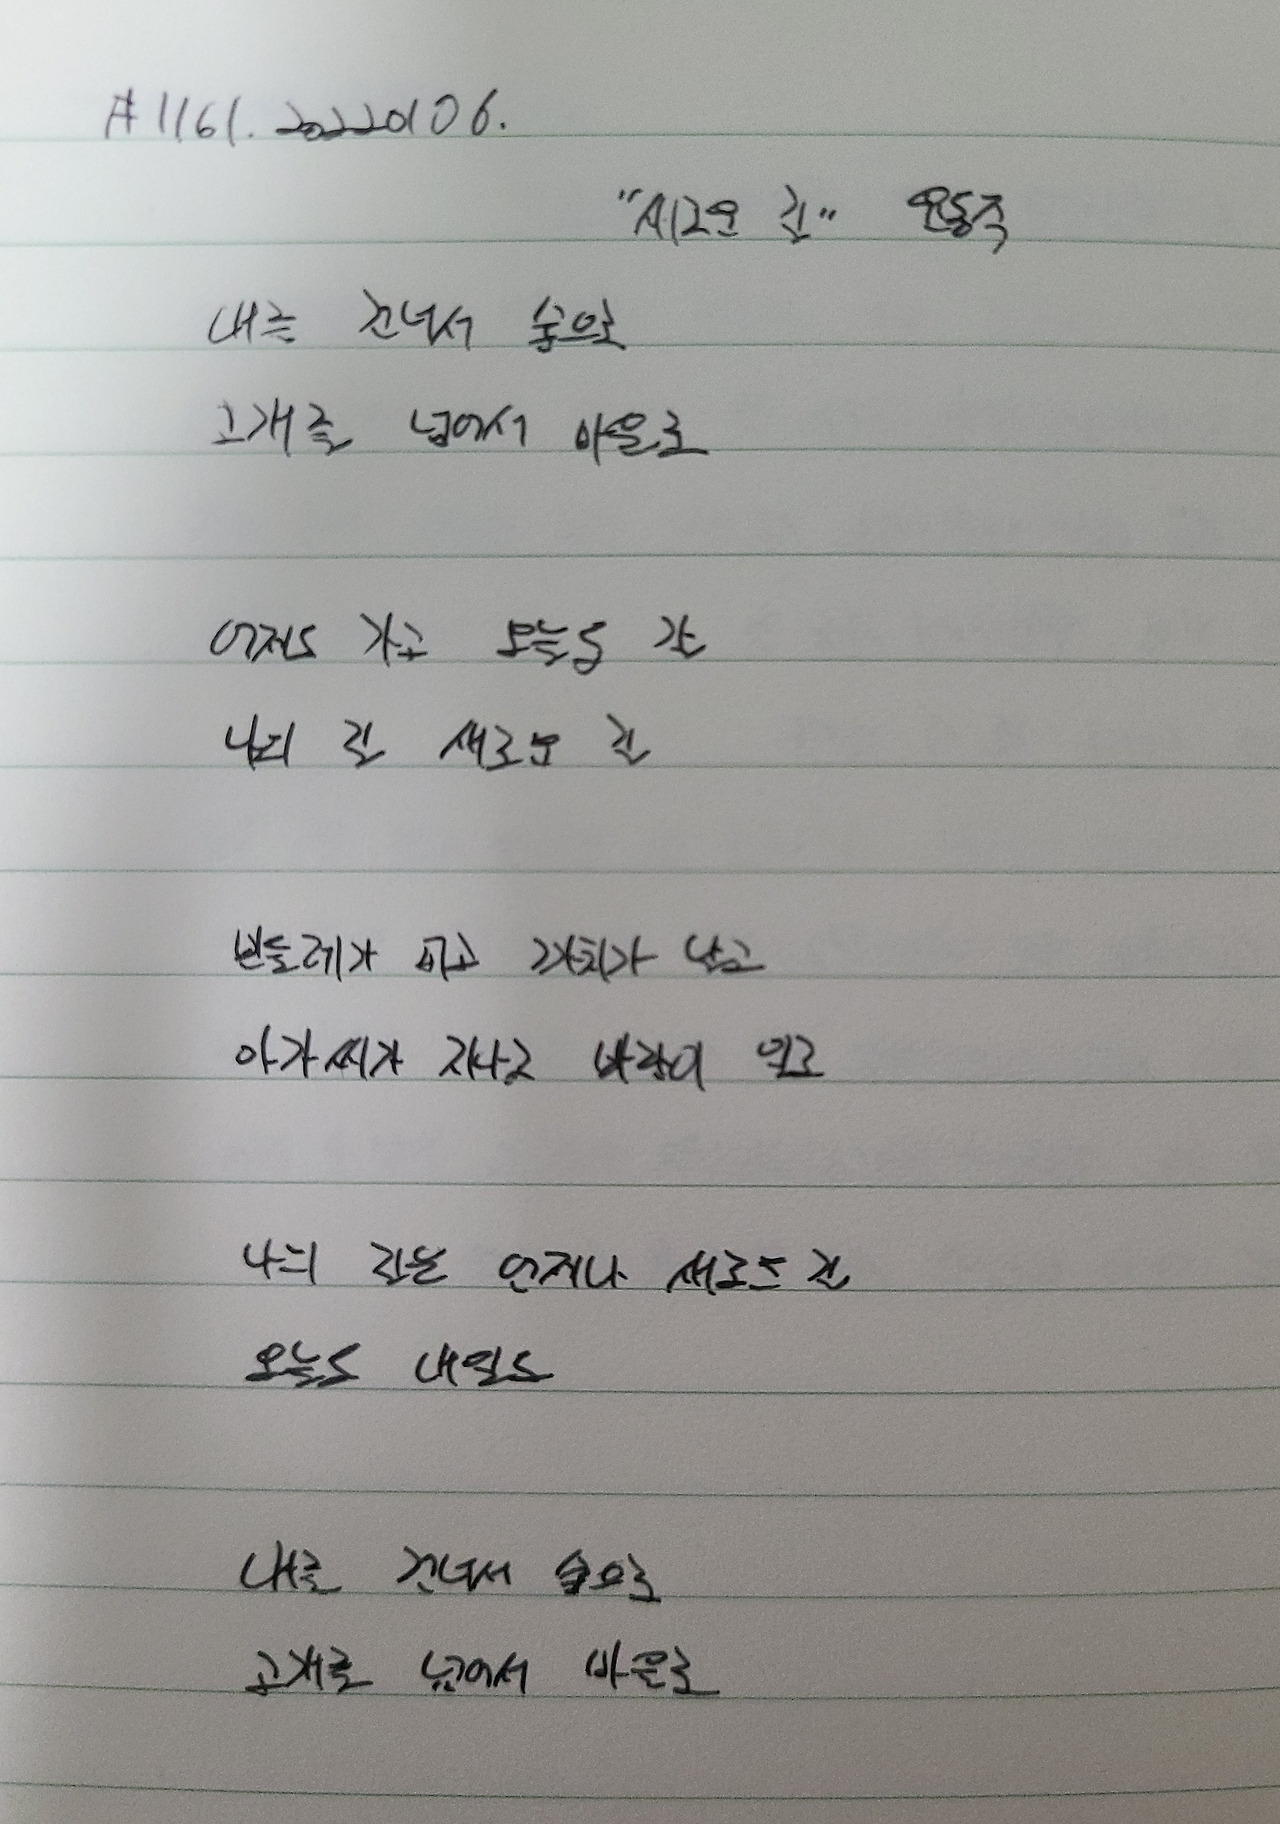 #1161. 20220106.
"새로운 길" 윤동주
내를 건너서 숲으로
고개를 넘어서 마을로
어제도 가고 오늘도 갈
나의 길 새로운 길
민들레가 피고 까치가 날고
아가씨가 지나고 바람이 일고
나의 길은 언제나 새로운 길
오늘도 내일도
내를 건너서 숲으로
고개를 넘어서 마을로